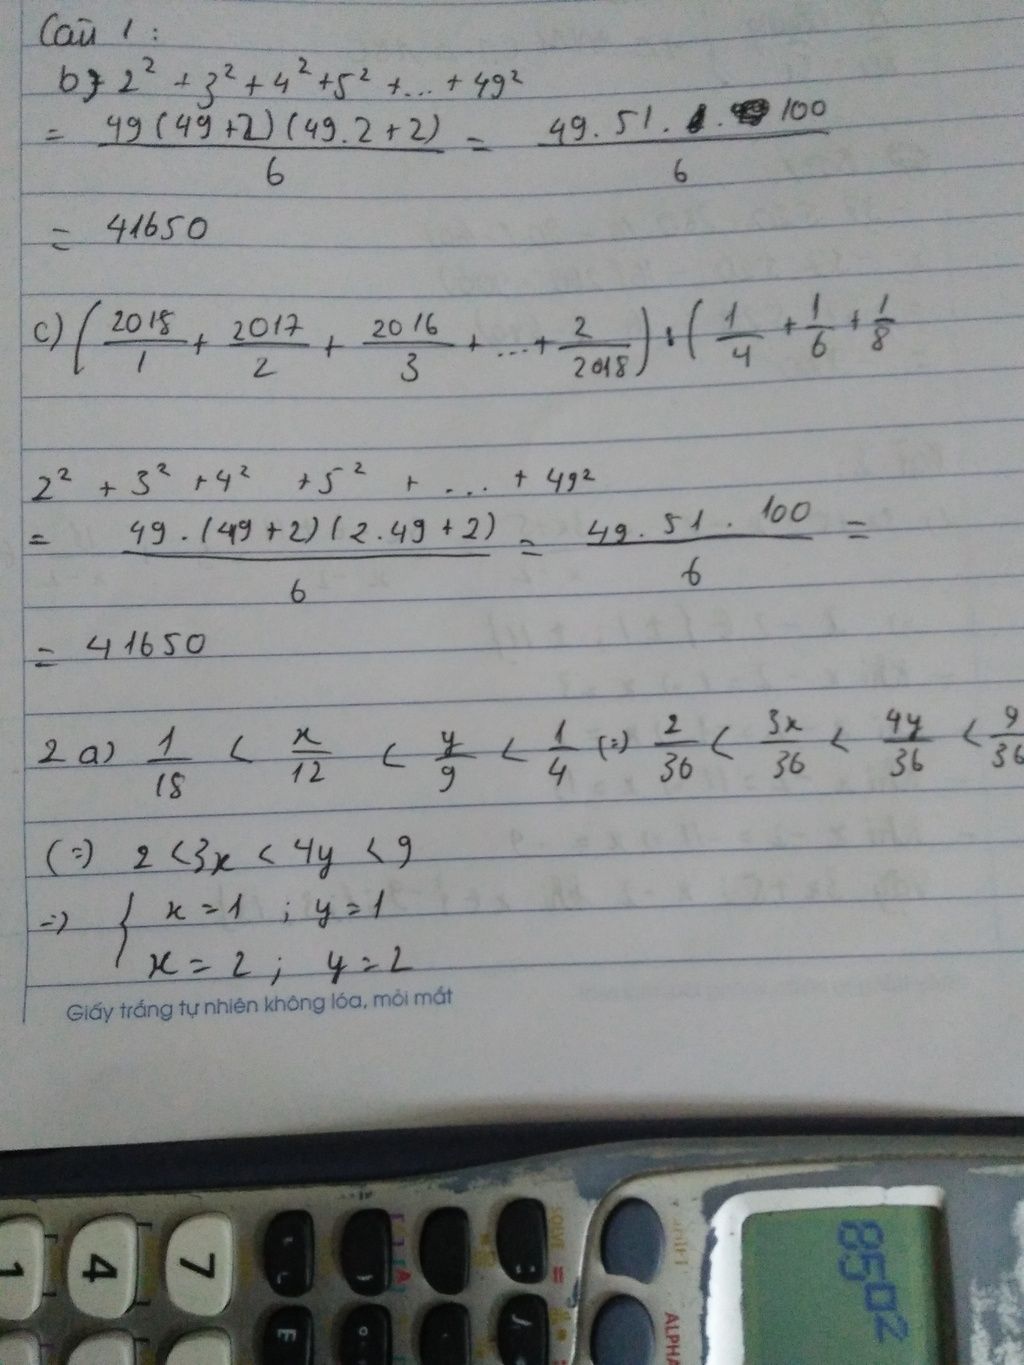 Câu 1 :
b) 2² + 3² + 4² + 5² + ... + 49²
= 49(49+2)(49.2+2)/6 = 49.51.100/6
= 41650
c) (2018/1 + 2017/2 + 2016/3 + ... + 2/2018) : (1/4 + 1/6 + 1/8
2² + 3² + 4² + 5² + ... + 49²
= 49.(49+2)(2.49+2)/6 = 49.51.100/6 =
= 41650
2 a) 1/18 < x/12 < y/9 < 1/4 (=) 2/36 < 3x/36 < 4y/36 < 9/36
(=) 2 < 3x < 4y < 9
=) { x = 1 ; y = 1
x = 2 ; y = 2
Giấy trắng tự nhiên không lóa, mỏi mắt
SOLVE =
SHIFT
ALPHA
7
4
1
8502